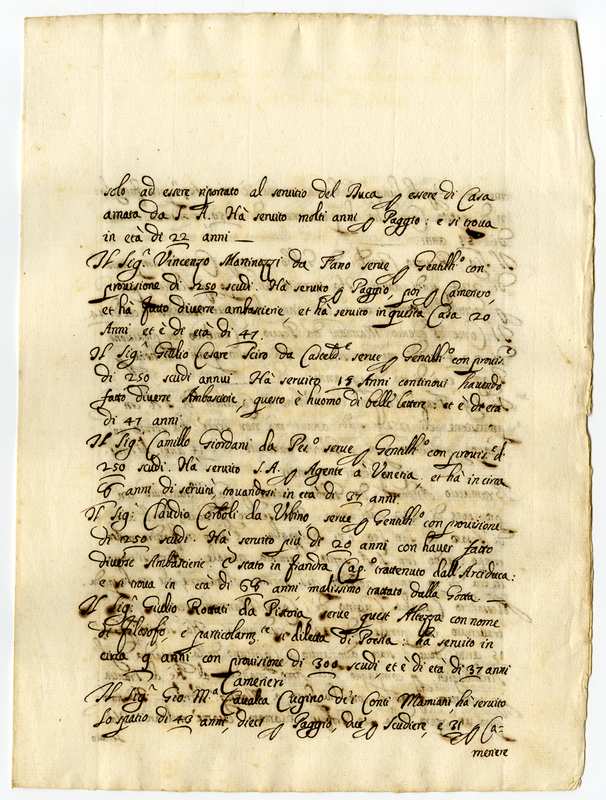 solo ad essere riportato al servitio del Duca p essere di Casa
amata da S. A. Hà servito molti anni p Paggio: e si trova
in età di 22 anni —
Il Sig.r Vincenzo Martinozzi da Fano serve p Gentilh.o con
provisione di 250 scudi. Hà servito p Paggio, poi p Cameriero,
et hà fatto diverse ambascierie, et hà servito in questa Casa 20
Anni, et è di età di 47
Il Sig.r Giulio Cesare da Casteld.e serve p Gentilh.o con provis.e
di 250 scudi annui. Hà servito 15 Anni continovi havendo
fatto diverse Ambascierie; questo è huomo di belle lettere: et è di età
di 47 anni
Il Sig.r Camillo Giordani da Pes.o serve p Gentilh.o con provis.e di
250 scudi. Hà servito S.A. p Agente à Venetia, et hà in circa
anni di servitù, trovandosi in età di 37 anni
Il Sig.r Claudio Corboli da Urbino serve p Gentilh.o con provisione
di 250 scudi. Hà servito più di 20 anni con haver fatto
diverse Ambascierie: È stato in fiandra Cap.o trattenuto dall'Arciduca:
e si trova in età di 68 anni malissimo trattato dalla Gotta —
Il Sig.r Giulio Rottati da Pistoia, serve quest'Altezza con nome
di filosofo, e particolarm.te si diletta di Poesia: hà servito in
circa 9 anni con provisione di 300 scudi, et è di età di 37 anni
Camerieri
Il Sig.r Gio. M.a Cavalca Cugino de' Conti Mamiani, hà servito
Lo spatio di 43 anni, dieci p Paggio, due p scudiere, e 31 p Ca-
meriere